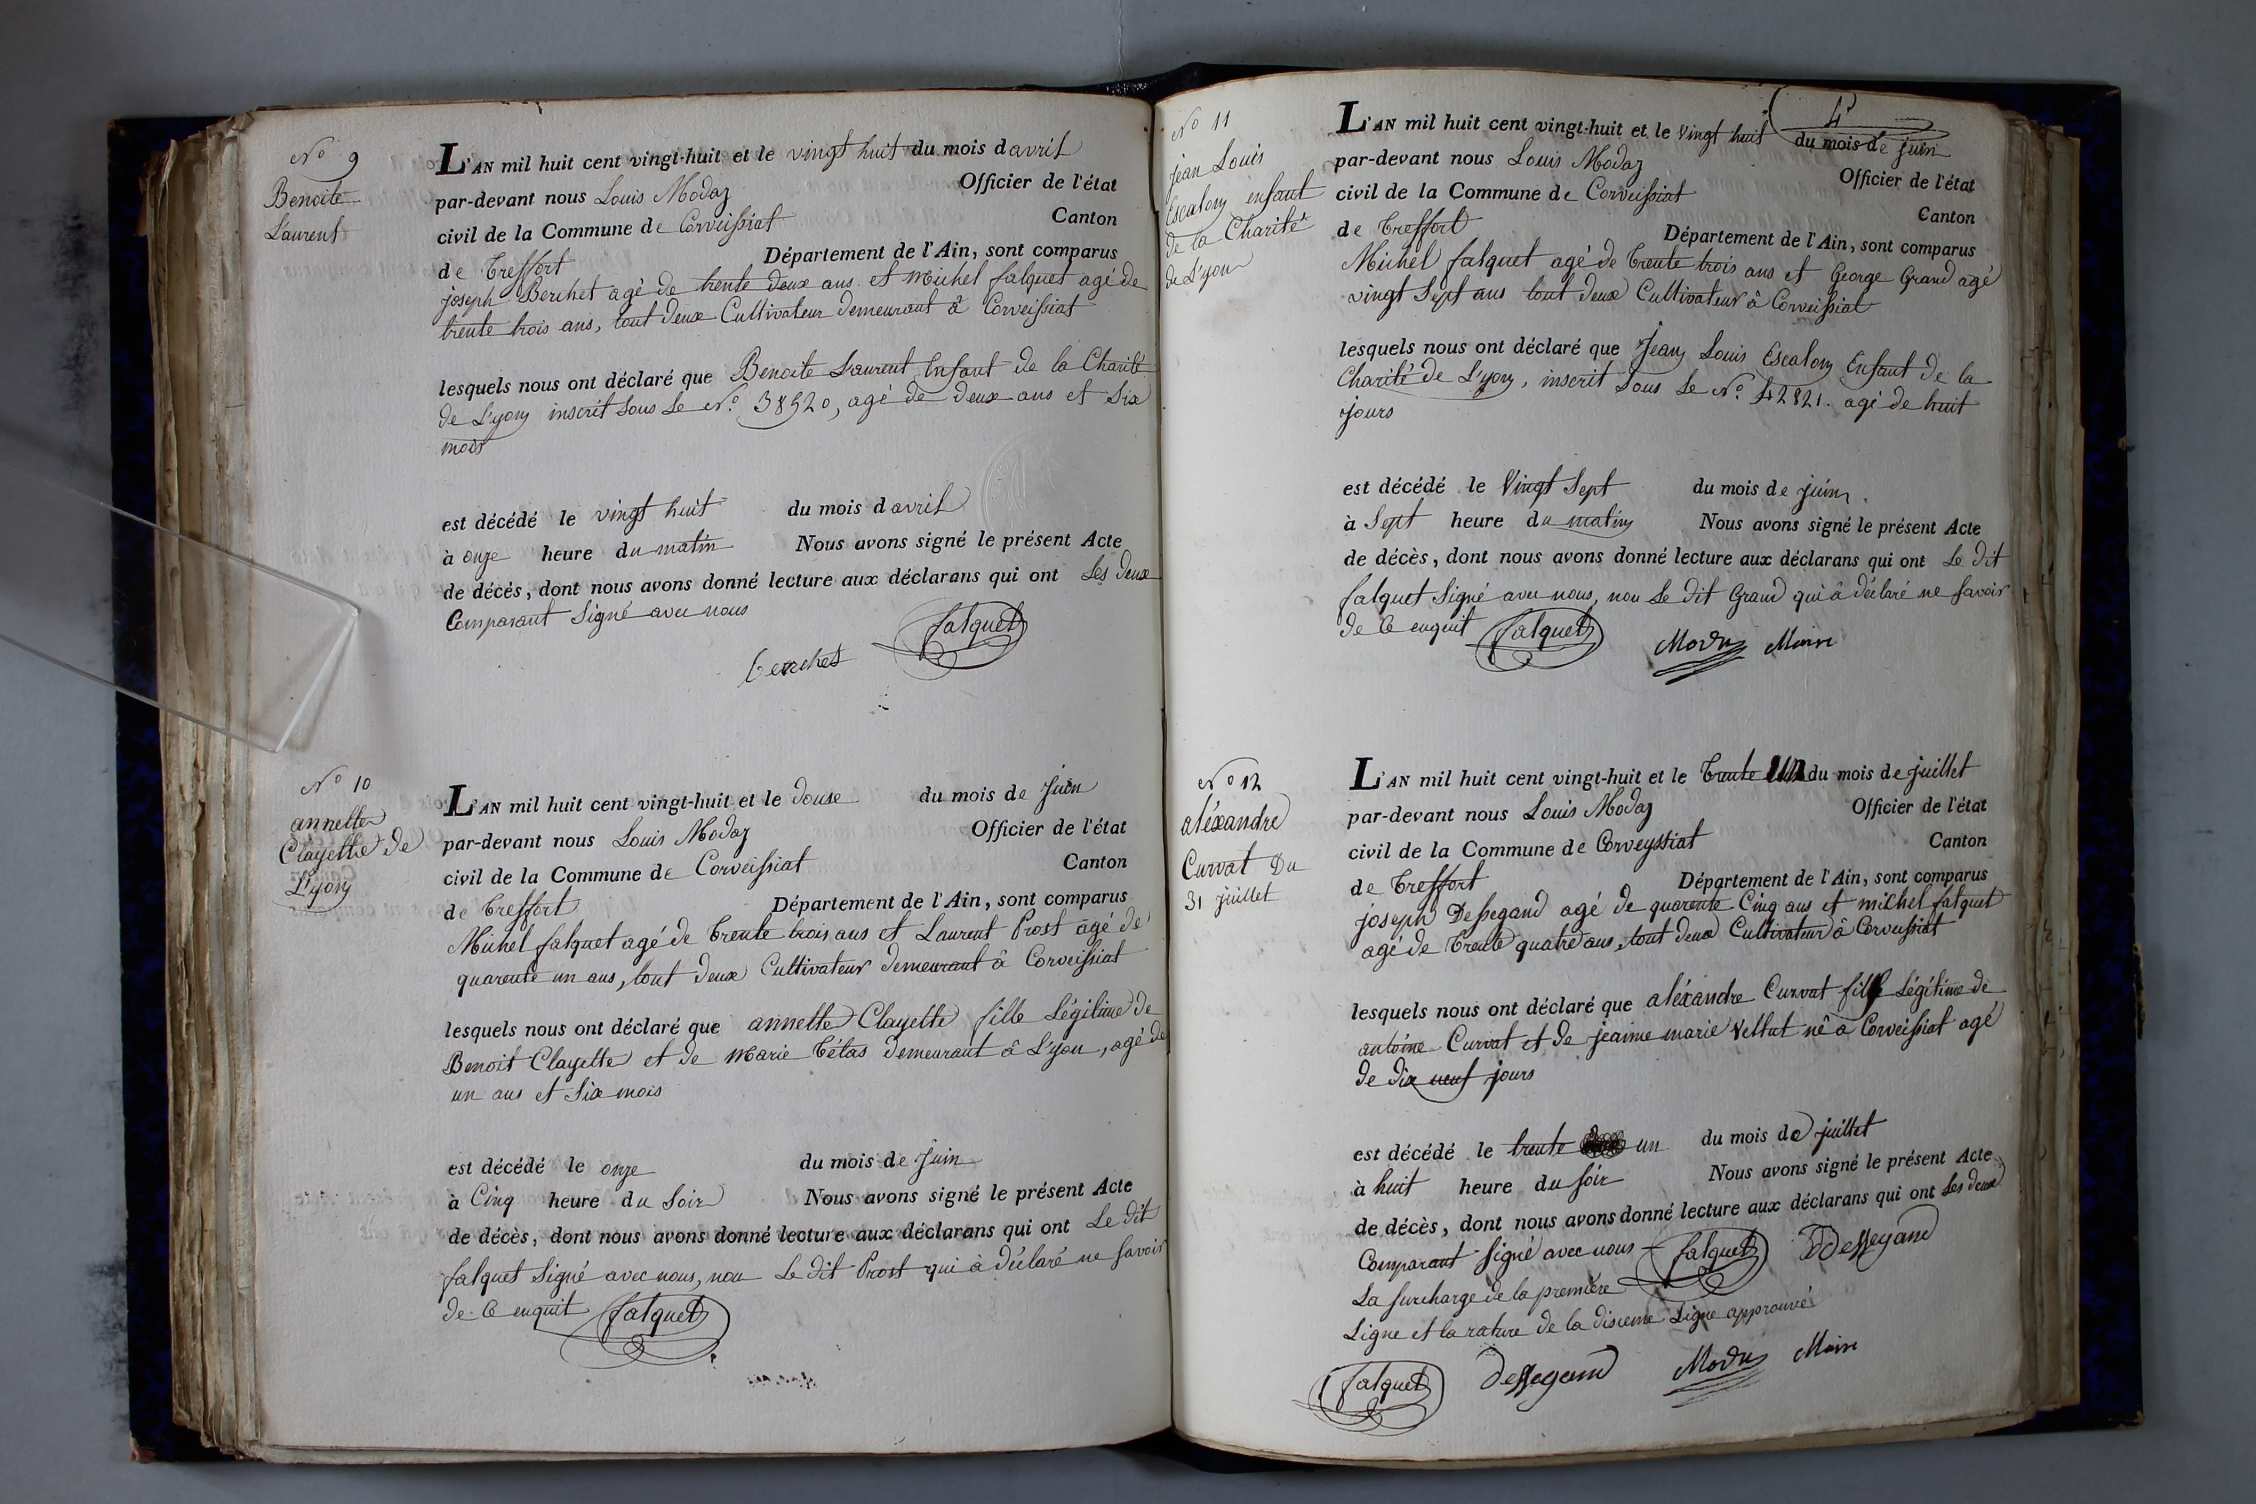 No 9
Benoite
Laurent
L'AN mil huit cent vingt-huit et le vingt huit du mois d avril
par-devant nous Louis Modaz Officier de l'état
civil de la Commune de Corveissiat Canton
de Treffort Département de l'Ain, sont comparus
joseph Berchet agé de trente deux ans et Michel falquet agé de
trente trois ans, tout deux Cultivateur demeurant à Corveissiat
lesquels nous ont déclaré que Benoite Laurent Enfant de la Charité
de Lyon inscrit sous le No. 38520, agé de deux ans et six
mois
est décédé le vingt huit du mois d avril
à onze heure du matin Nous avons signé le présent Acte
de décès, dont nous avons donné lecture aux déclarans qui ont Les deux
Comparant Signé avec nous
falquet
berchet
No 10
annette
Clayette de
Lyon
L'AN mil huit cent vingt-huit et le douse du mois de juin
par-devant nous Louis Modaz Officier de l'état
civil de la Commune de Corveissiat Canton
de Treffort Département de l'Ain, sont comparus
Michel falquet agé de Trente trois ans et Laurent Prost agé de
quarente un ans, tout deux Cultivateur demeurant à Corveissiat
lesquels nous ont déclaré que annette Clayette fille Légitime de
Benoit Clayette et de Marie Tétas demeurant à Lyon, agé de
un ans et six mois
est décédé le onze du mois de Juin
à Cinq heure du Soir Nous avons signé le présent Acte
de décès, dont nous avons donné lecture aux déclarans qui ont Le dit
falquet Signé avec nous, non Le dit Prost qui à déclaré ne savoir
de ce enquit falquet
4
No 11
jean Louis
Escalon enfant
de la Charité
de Lyon
L'AN mil huit cent vingt-huit et le vingt huit du mois de juin
par-devant nous Louis Modaz Officier de l'état
civil de la Commune de Corveissiat Canton
de Treffort Département de l'Ain, sont comparus
Michel falquet agé de Trente trois ans et George Grand agé
vingt sept ans tout deux Cultivateur à Corveissiat
lesquels nous ont déclaré que Jean Louis Escalon Enfant de la
Charité de Lyon, inscrit Sous Le No. 42821. agé de huit
jours
est décédé le Vingt Sept du mois de juin.
à Sept heure du matin Nous avons signé le présent Acte
de décès, dont nous avons donné lecture aux déclarans qui ont Le dit
falquet Signé avec nous, non Le dit Grand qui à déclaré ne savoir
de ce enquit falquet Modaz Maire
No 12
aléxandre
Curvat Du
31 juillet
L'AN mil huit cent vingt-huit et le Trente un du mois de juillet
par-devant nous Louis Modaz Officier de l'état
civil de la Commune de Corveyssiat Canton
de Treffort Département de l'Ain, sont comparus
joseph Dessegand agé de quarente Cinq ans et michel falquet
agé de Trente quatre ans, tout deux Cultivateur à Corveissiat
lesquels nous ont déclaré que aléxandre Curvat fils Légitime de
antoine Curvat et de jeanne marie Vellut né à Corveissiat agé
de dix neuf jours
est décédé le trente un du mois de juillet
à huit heure du soir Nous avons signé le présent Acte
de décès, dont nous avons donné lecture aux déclarans qui ont Les deux
Comparant signé avec nous falquet Dessegand
La surcharge de la première
Ligne et la rature de la disieme Ligne approuvé
falquet Dessegand Modaz Maire